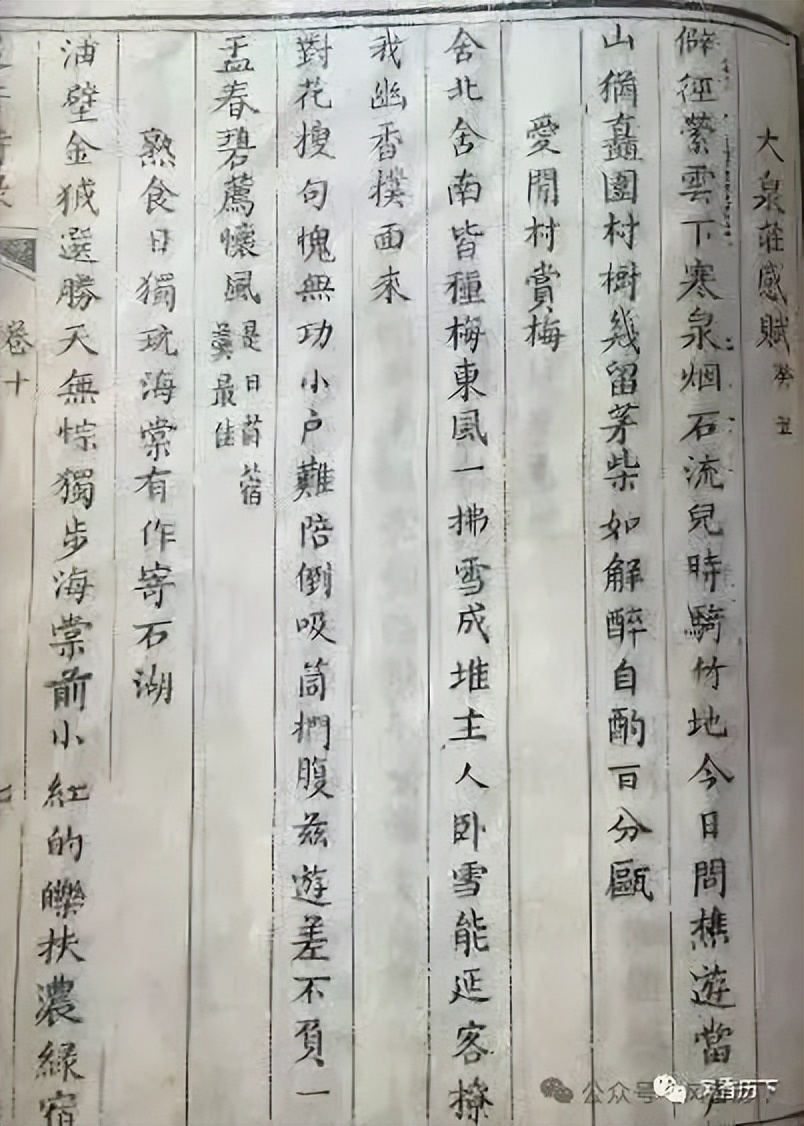 大泉莊感賦癸丑
僻徑縈雲下寒泉烟石流兒時騎竹地今日問樵遊當戶
山猶矗圍村樹幾留茅柴如解醉自酌百分甌
愛閒村賞梅
舍北舍南皆種梅東風一拂雪成堆主人臥雪能延客撩
我幽香撲面來
對花搜句愧無功小户難陪倒吸筒捫腹茲遊差不負一
盂春碧薦懷風是日苜蓿
羹最佳
熟食日獨玩海棠有作寄石湖
油壁金狨選勝天無悰獨步海棠前小紅的皪扶濃綠宿
卷十
七
公众号
看历下